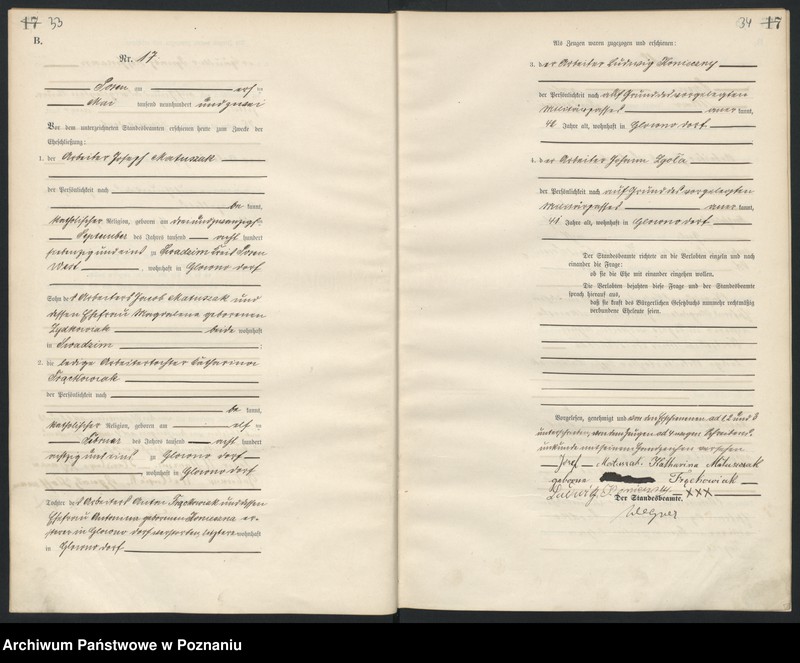 17 33
B.
Nr. 17
Posen am elf ten
Mai tausend neunhundert und zwei
Vor dem unterzeichneten Standesbeamten erschienen heute zum Zwecke der
Eheschließung:
1. der Arbeiter Joseph Matuszak
der Persönlichkeit nach
be kannt,
katholischer Religion, geboren am dreiundzwanzigsten
September des Jahres tausend acht hundert
siebenzig und eins zu Swadzim Kreis Posen
West, wohnhaft in Glowno dorf
Sohn des Arbeiters Jacob Matuszak und
dessen Ehefrau Magdalena geborenen
beide wohnhaft
in Swadzim
2. die ledige Arbeitertochter Catharina
Frąckowiak
der Persönlichkeit nach
be kannt,
katholischer Religion, geboren am elf ten
Februar des Jahres tausend acht hundert
achtzig und eins zu Glowno dorf
, wohnhaft in Glowno dorf
Tochter des Arbeiters Anton Frąckowiak und dessen
Ehefrau Antonina geborenen er-
sterer in Glowno dorf verstorben, letztere wohnhaft
in Glowno dorf
34 17
Als Zeugen waren zugezogen und erschienen:
3. der Arbeiter Ludwig
der Persönlichkeit nach auf Grund des vorgelegten
Militärpasses aner kannt,
46 Jahre alt, wohnhaft in Glowno dorf
4. der Arbeiter Johann
der Persönlichkeit nach auf Grund des vorgelegten
Militärpasses aner kannt,
41 Jahre alt, wohnhaft in Glowno dorf
Der Standesbeamte richtete an die Verlobten einzeln und nach
einander die Frage:
ob sie die Ehe mit einander eingehen wollen.
Die Verlobten bejahten diese Frage und der Standesbeamte
sprach hierauf aus,
daß sie kraft des Bürgerlichen Gesetzbuchs nunmehr rechtmäßig
verbundene Eheleute seien.
Vorgelesen, genehmigt und von den Erschienenen ad 1, 2 und 3
unterschrieben, von dem Zeugen ad 4 wegen Schreibens-
unkunde mit seinem Handzeichen versehen
Józef Matuszak Katharina Matuszak
geborene Frąckowiak
Ludwig XXX
Der Standesbeamte.
Archiwum Państwowe w Poznaniu